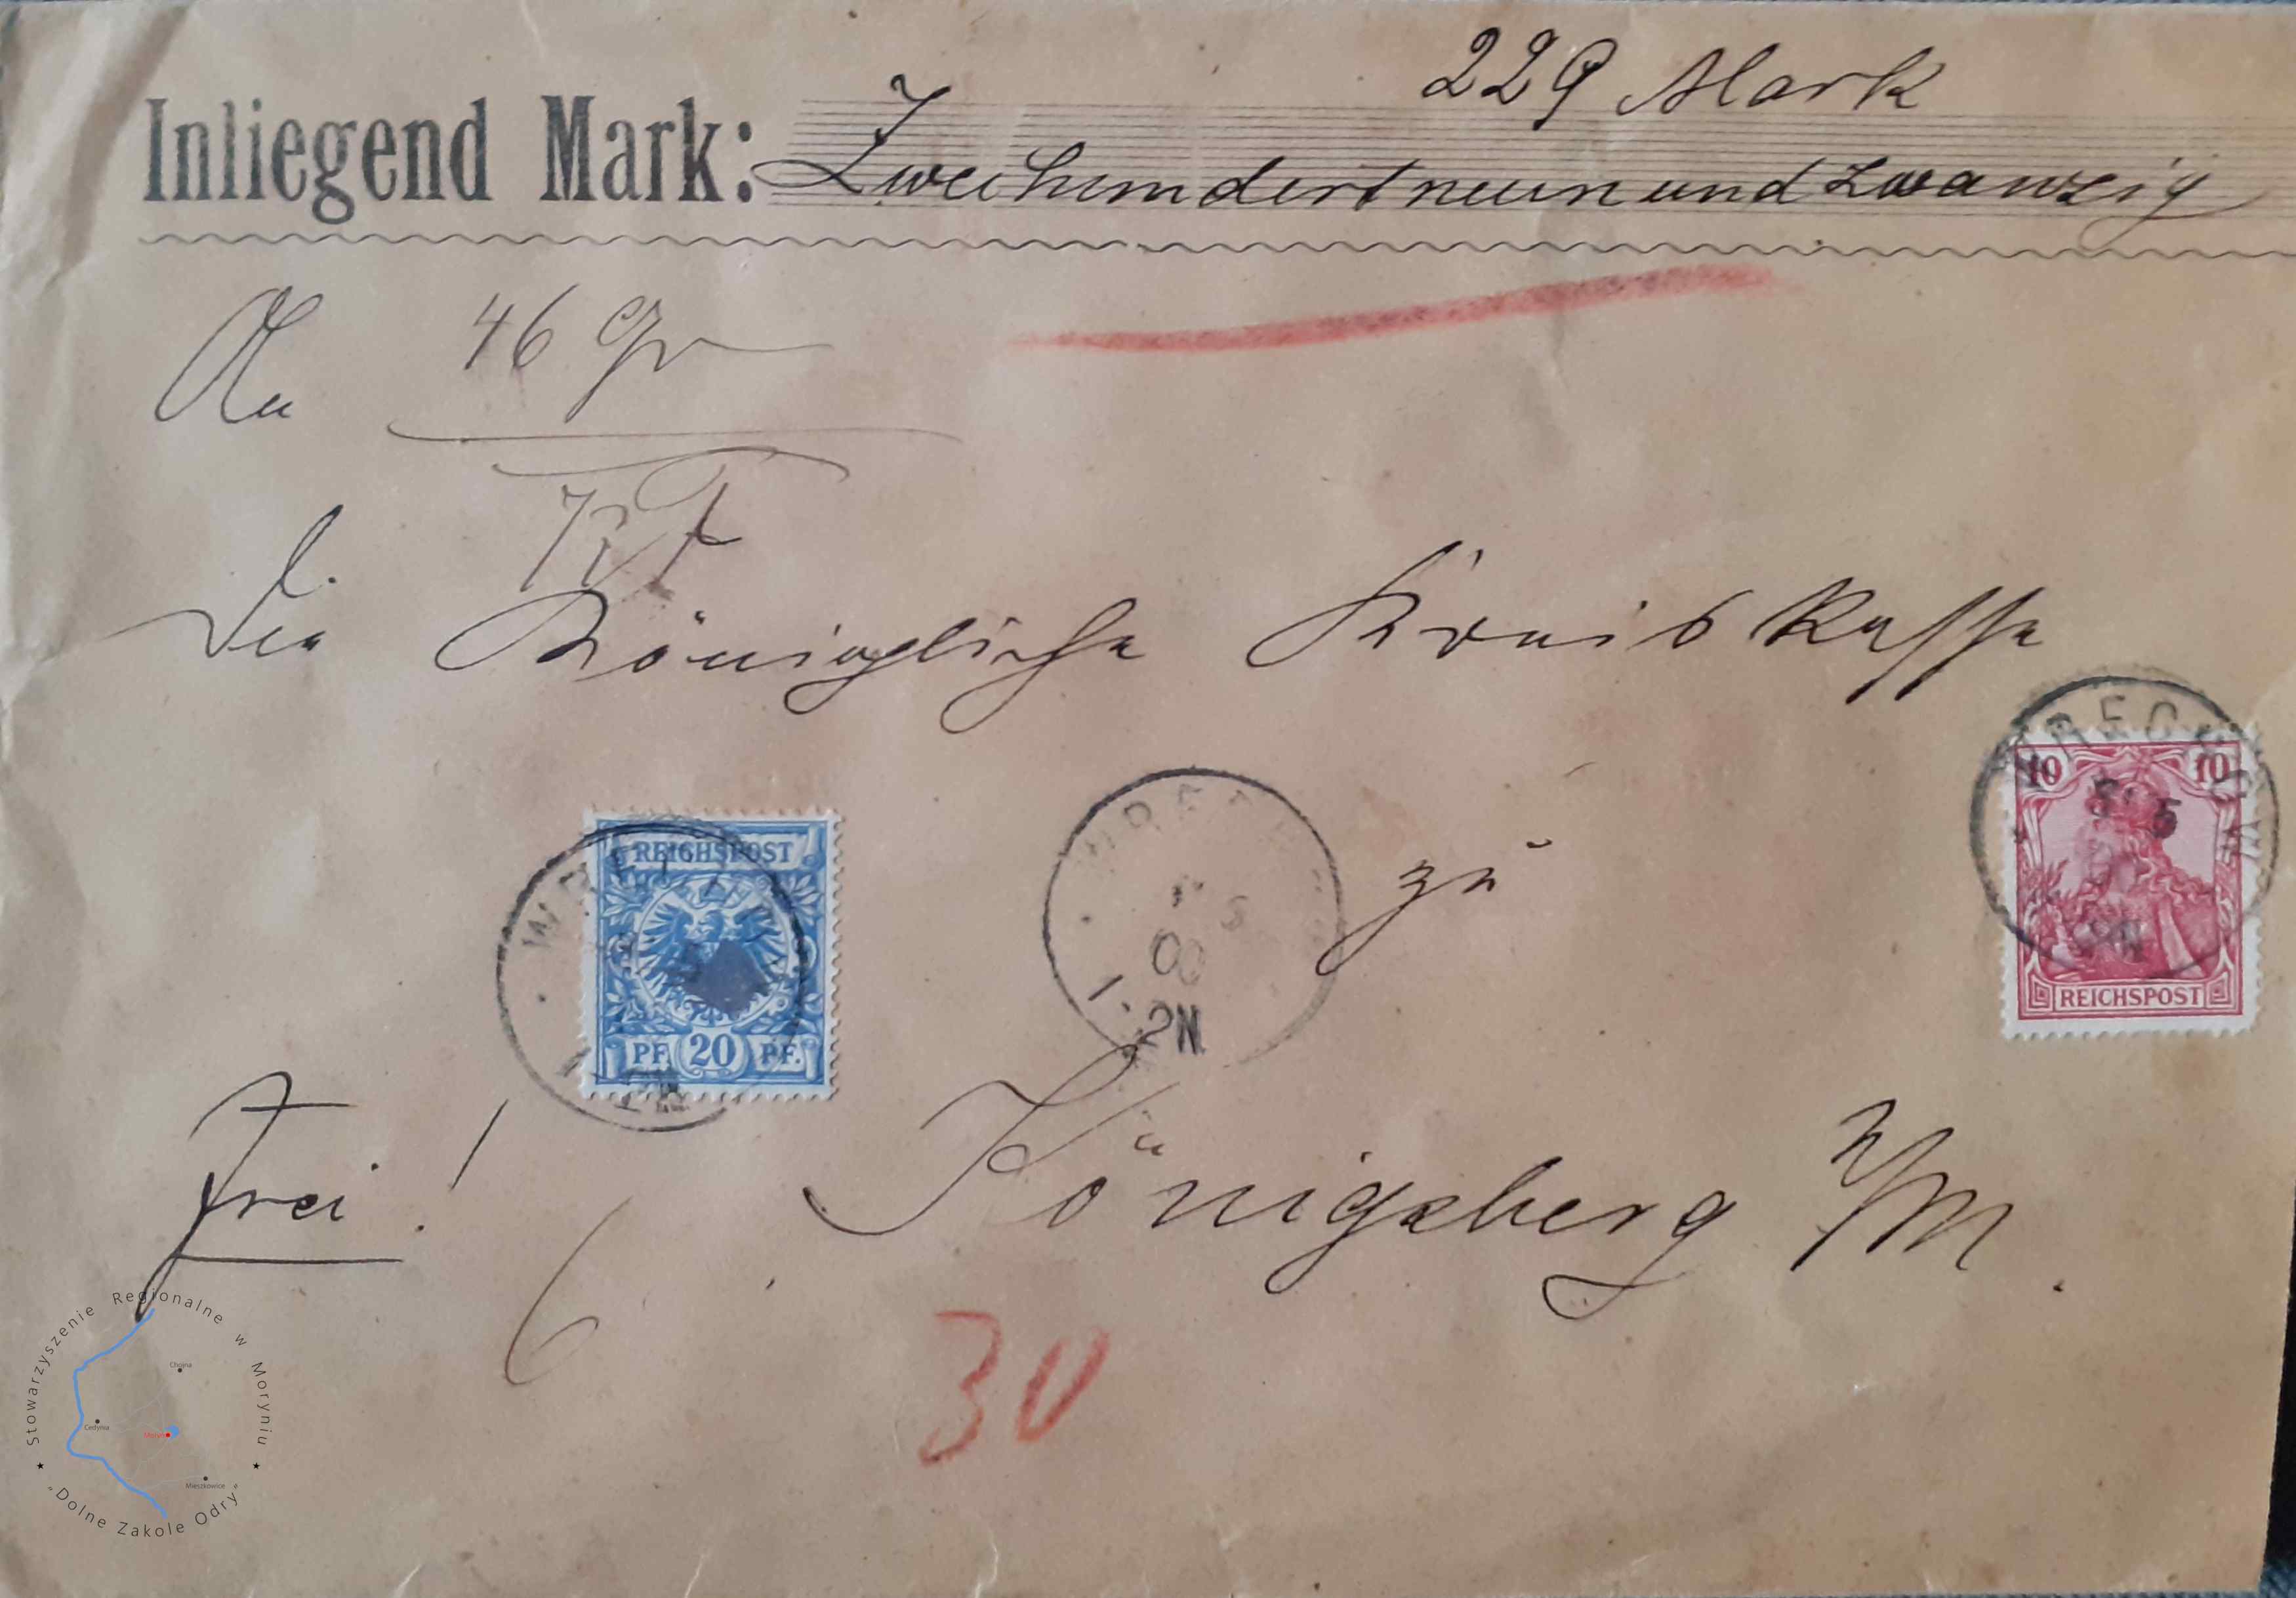 229 Mark
Inliegend Mark: Zweihundertneunundzwanzig
An 46 Gr
Die Königliche Kreis Kasse
WRECHOW
5 5
00
REICHSPOST
PF. 20 PF.
00
1-2N
zu
10 10
REICHSPOST
Frei!
Königsberg N/M.
6
30
Stowarzyszenie Regionalne w Moryniu
Chojna
Cedynia
Moryń
Mieszkowice
"Dolne Zakole Odry"